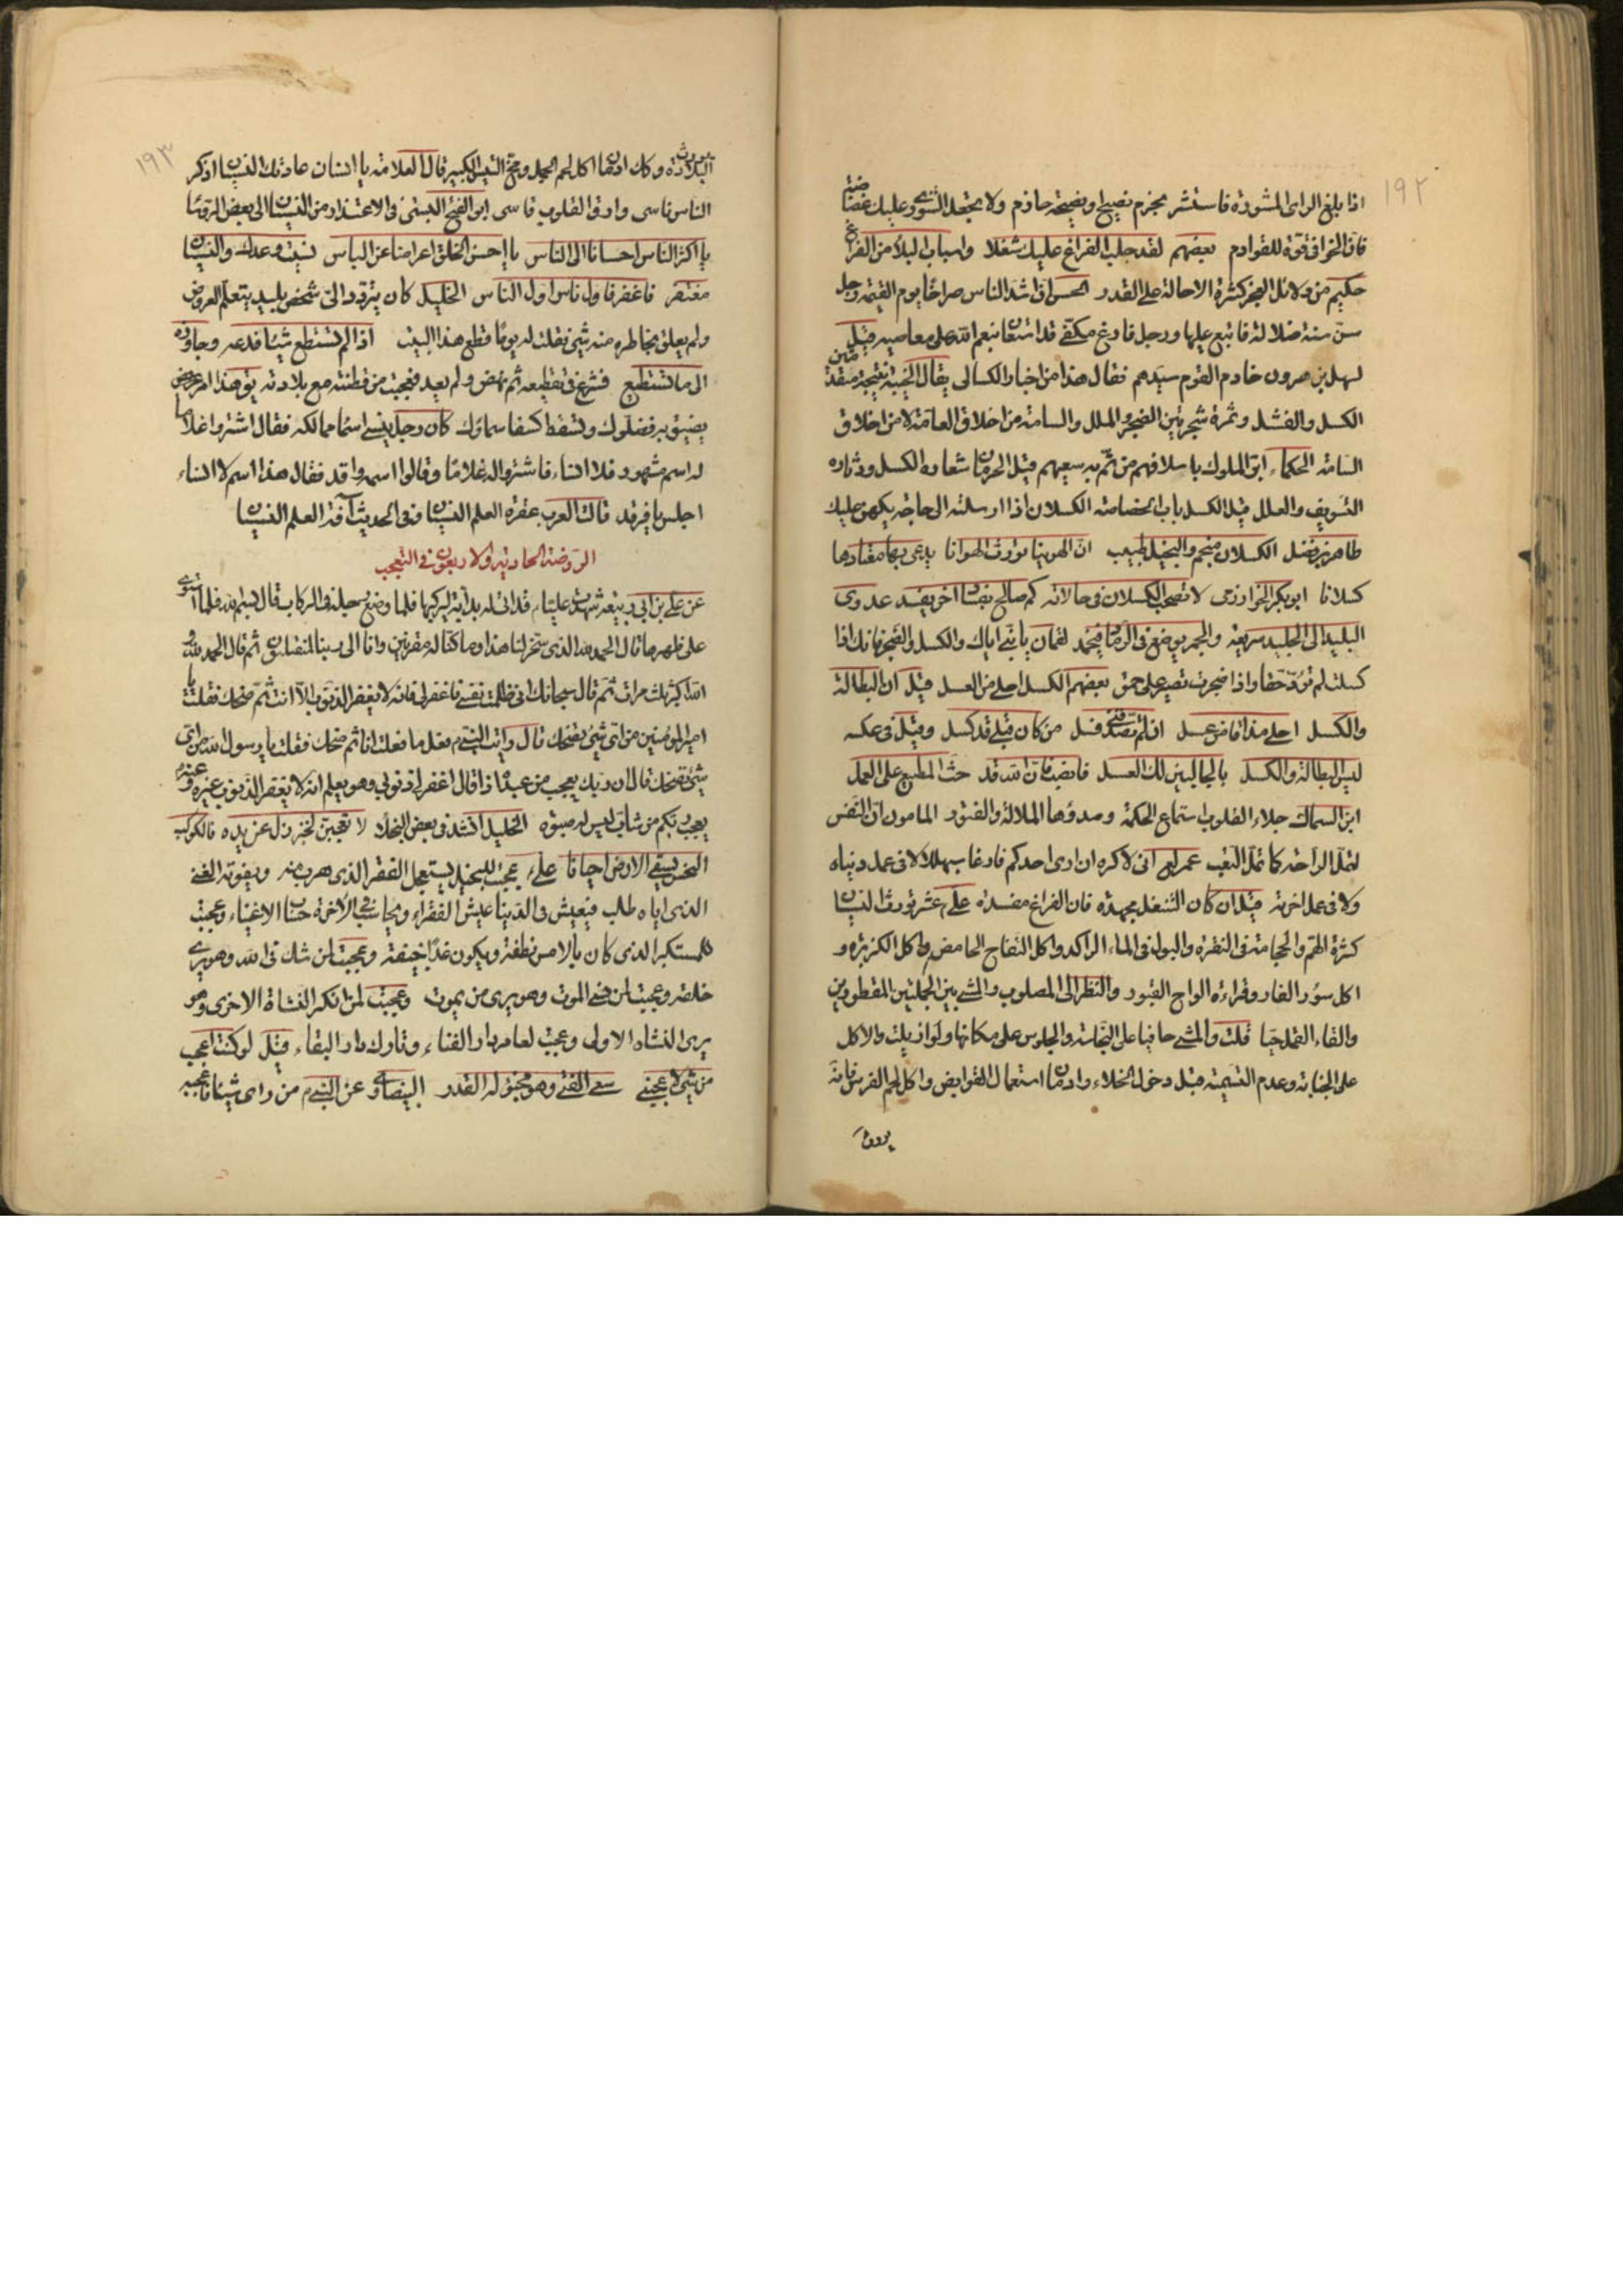 ١٩٢
اذا بلغ الرأى المشورة فاستشر بحزم نصيح او نصيحة حازم ولا تجعل الشورى عليك غضاضة
فان الخوافى قوة للقوادم بعضهم لقد جلب الفراغ عليك شغلا واسباب البلاء من الفراغ
حكيم من دلائل العجز كثرة الاحالة على القدر الحسن ان اشد الناس صراخا يوم القيمة رجل
سن سنة ضلالة فاتبع عليها ورجل فارغ مكفى قد استعان بنعم الله على معاصيه قيل
لسهل بن هرون خادم القوم سيدهم فقال هذا من اخبار الكسالى يقال الخيبة نتيجة مقدمتين
الكسل والفشل وثمرة شجرتين الضجر والملل والسامة من اخلاق العامة لا من اخلاق
السامة الحكماء ابق الملوك باسلافهم من تم به سعيهم قيل الحرمان شعاره الكسل ودثاره
التسويف والعلل قيل الكسل باب الخصاصة الكسلان اذا ارسلته الى حاجة يكهن عليك
طاهر بن فضل الكسلان منجم والبخيل طبيب ان الهوينا تورث الهوانا يدعى بها معتادها
كسلانا ابو بكر الخوارزمى لا تصحب الكسلان فى حالاته كم صالح بفساد اخر يفسد عدوى
البليد الى الجليد سريعة والجمر يوضع فى الرماد فيخمد لقمان يا بنى اياك والكسل والضجر فانك اذا
كسلت لم تؤد حقا واذا ضجرت لم تصبر على حق بعضهم الكسل احلى من العسل قيل ان البطالة
والكسل احلى مذاقا من عسل ان لم تصدقنى فسل من كان قبلى قد كسل وقيل فى عكسه
ليس البطالة والكسل بالجالبين لك العسل فان الله قد حث المطيع على العمل
ابن السماك جلاء القلوب استماع الحكمة وصدؤها الملالة والفتور المامون ان النفس
لتمل الراحة كما تمل التعب عمر انى لاكره ان ارى احدكم فارغا سبهللا لا فى عمل دنياه
ولا فى عمل اخرته قيل ان كان الشغل مجهدة فان الفراغ مفسدة على عشر تورث النسيان
كثرة الهم والحجامة فى النقرة والبول فى الماء الراكد واكل التفاح الحامض واكل الكزبرة و
اكل سؤر الفار وقراءة الواح القبور والنظر الى المصلوب والمشى بين الجملين المقطورين
والقاء القمل حيا قلت والمشى حافيا على النجاسة والجلوس على مكانها ولو ازيلت والاكل
على الجنابة وعدم التسمية قبل دخول الخلاء وادمان استعمال القوابض واكل لحم الفرس فانه
يورث
١٩٣
البلادة وكذا ادمان اكل لحم الجمل ومخ التيس الكبير قال العلامة يا انسان عادتك النسيان اذكر
الناس ناسى وارق القلوب قاسى ابو الفتح البستى فى الاعتذار من النسيان الى بعض الرؤسا
يا اكثر الناس احسانا الى الناس يا احسن الخلق اعراضا عن الباس نسيت وعدك والنسيان
مغتفر فاغفر فاول ناس اول الناس الخليل كان يتردد الى شخص بليد يتعلم العروض
ولم يعلق بخاطره منه شئ فقلت له يوما قطع هذا البيت اذا لم تستطع شيئا فدعه وجاوزه
الى ما تستطيع فشرع فى تقطيعه ثم نهض ولم يعد فعجبت من فطنته مع بلادته
كان رجل ينسى اسماء مماليكه فقال اشتروا غلاما
له اسم مشهور فلا انساه فاشتروا له غلاما وقالوا اسمه واقد فقال هذا اسم لا انساه
اجلس يا فرقد قالت العرب عفرة العلم النسيان وفى الحديث آفة العلم النسيان
الروضة الحادية والاربعون فى التعجب
عن على بن ابى ربيعة شهدت عليا م قد اتى له بدابة ليركبها فلما وضع رجله فى الركاب قال بسم الله فلما استوى
على ظهرها قال الحمد لله الذى سخر لنا هذا وما كنا له مقرنين وانا الى ربنا لمنقلبون ثم قال الحمد لله و
الله اكبر ثلث مرات ثم قال سبحانك انى ظلمت نفسى فاغفر لى فانه لا يغفر الذنوب الا انت ثم ضحك فقلت يا
امير المؤمنين من اى شئ تضحك قال رايت النبى م فعل ما فعلت انا ثم ضحك فقلت يا رسول الله من اى
شئ تضحك قال ان ربك يعجب من عبده اذا قال اغفر لى ذنوبى وهو يعلم انه لا يغفر الذنوب غيره
يعجب ربكم من شاب ليس له صبوة الخليل انشد فى بعض البخلاء لا تعجبن لخبز زل عن يده فالكوكب
النحس يسقى الارض احيانا على عجبت للبخيل يستعجل الفقر الذى هرب منه ويفوته الغنى
الذى اياه طلب فيعيش فى الدنيا عيش الفقراء ويحاسب فى الآخرة حساب الاغنياء وعجبت
للمستكبر الذى كان بالامس نطفة ويكون غدا جيفة وعجبت لمن شك فى الله وهو يرى
خلقه وعجبت لمن نسى الموت وهو يرى من يموت وعجبت لمن انكر النشاة الاخرى وهو
يرى النشاه الاولى وعجبت لعامر دار الفناء وتارك دار البقاء قيل لو كنت اعجب
من شئ لاعجبنى سعى الفتى وهو مخبو له القدر البيضاوى عن النبى م من راى شيئا فاعجبه